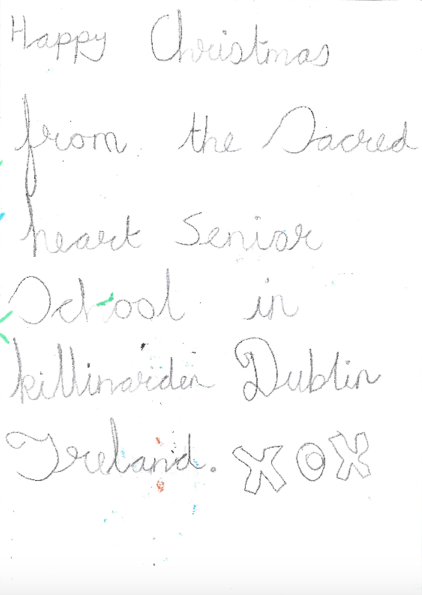 Happy Christmas
from the Sacred
heart Senior
School in
killinarden Dublin
Ireland. XOX